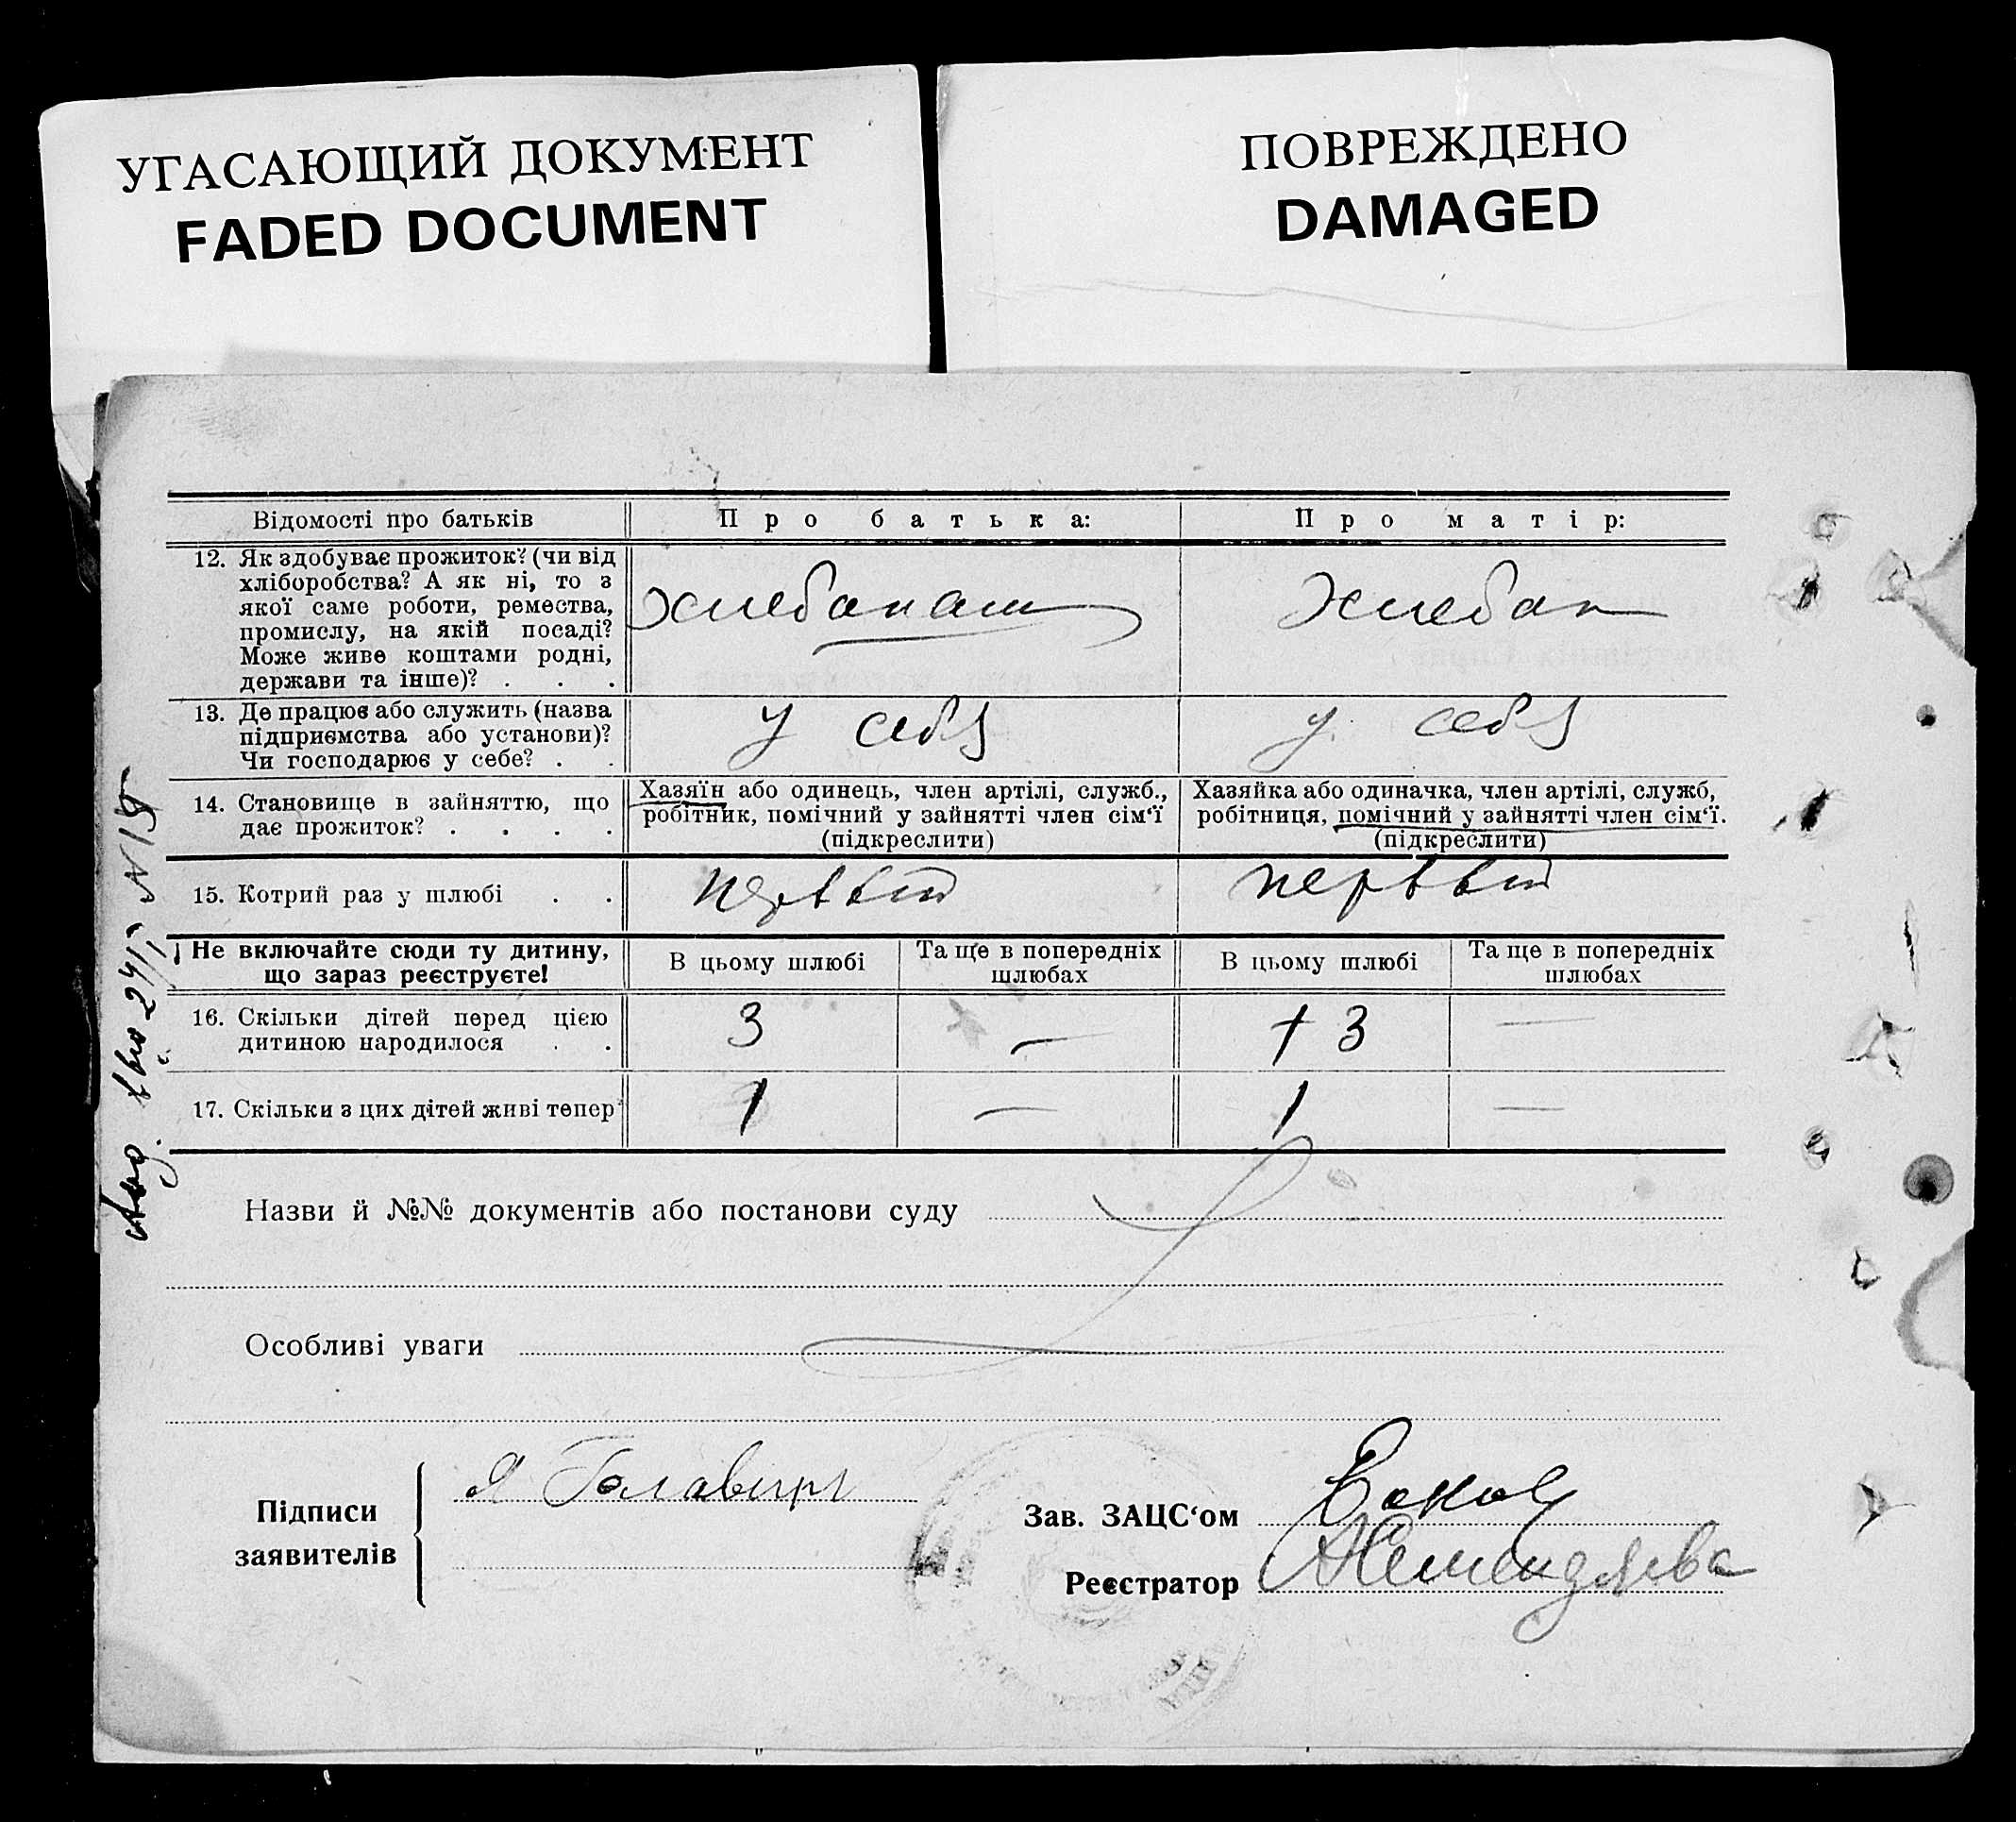 УГАСАЮЩИЙ ДОКУМЕНТ
FADED DOCUMENT
ПОВРЕЖДЕНО
DAMAGED
Відомості про батьків
Про батька:
Про матір:
12. Як здобуває прожиток? (чи від
хліборобства? А як ні, то з
якої саме роботи, ремества,
промислу, на якій посаді?
Може живе коштами родні,
держави та інше)? . . .
хлебопаш
хлебоп
13. Де працює або служить (назва
підприємства або установи)?
Чи господарює у себе? . .
у себя
у себя
14. Становище в зайняттю, що
дає прожиток? . . . .
Хазяїн або одинець, член артілі, служб.,
робітник, помічний у зайнятті член сім‘ї
(підкреслити)
Хазяйка або одиначка, член артілі, служб,
робітниця, помічний у зайнятті член сім‘ї.
(підкреслити)
15. Котрий раз у шлюбі . .
первый
первый
Не включайте сюди ту дитину,
що зараз реєструєте!
В цьому шлюбі
Та ще в попередніх
шлюбах
В цьому шлюбі
Та ще в попередніх
шлюбах
16. Скільки дітей перед цією
дитиною народилося . .
3
—
3
—
17. Скільки з цих дітей живі тепер
1
—
1
—
Назви й №№ документів або постанови суду
Особливі уваги
Підписи
заявителів
Зав. ЗАЦС‘ом
Реєстратор